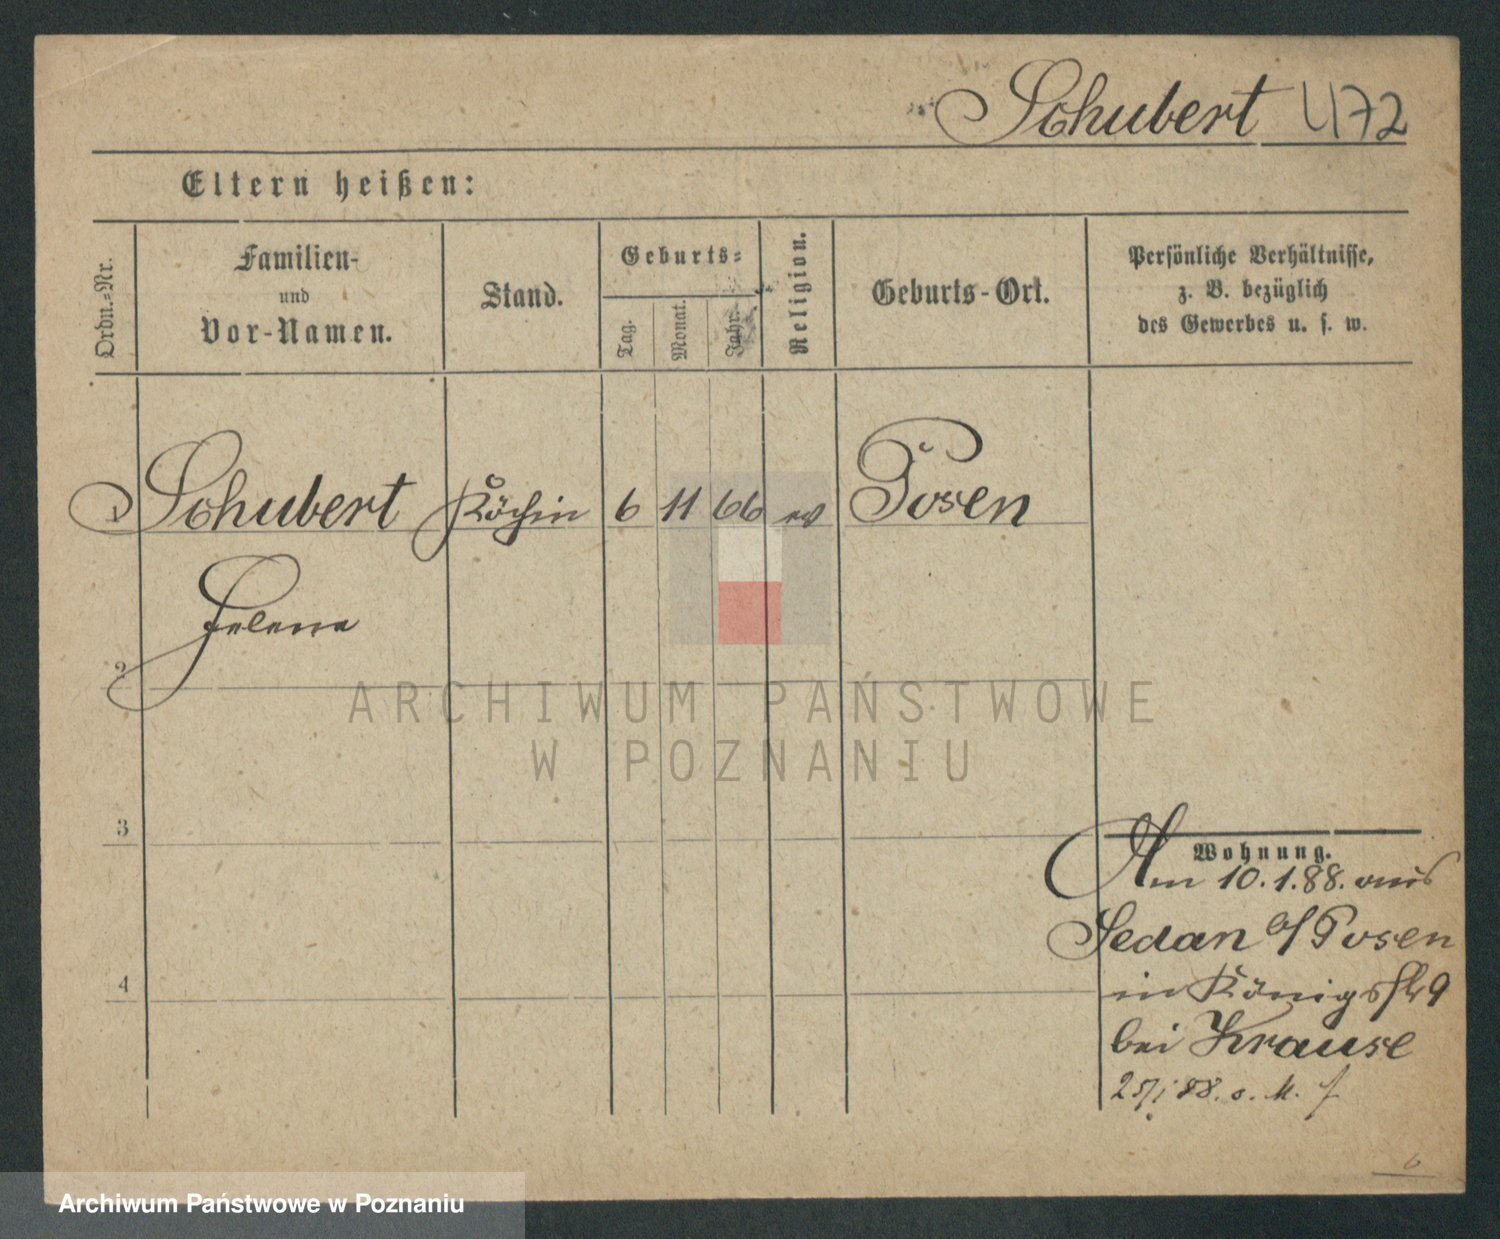 Schubert 472
Eltern heißen:
Ordn.=Nr.
Familien-
und
Vor-Namen.
Stand.
Geburts=
Tag.
Monat.
Jahr.
Religion.
Geburts-Ort.
Persönliche Verhältnisse,
z. B. bezüglich
des Gewerbes u. s. w.
1 Schubert Köchin 6 11 66 ev Posen
Helene
2
3
4
Wohnung.
Am 10.1.88. aus
Sedan b/ Posen
in Königsstr 9
bei Krause
88. o. M.
6
ARCHIWUM PAŃSTWOWE
W POZNANIU
Archiwum Państwowe w Poznaniu